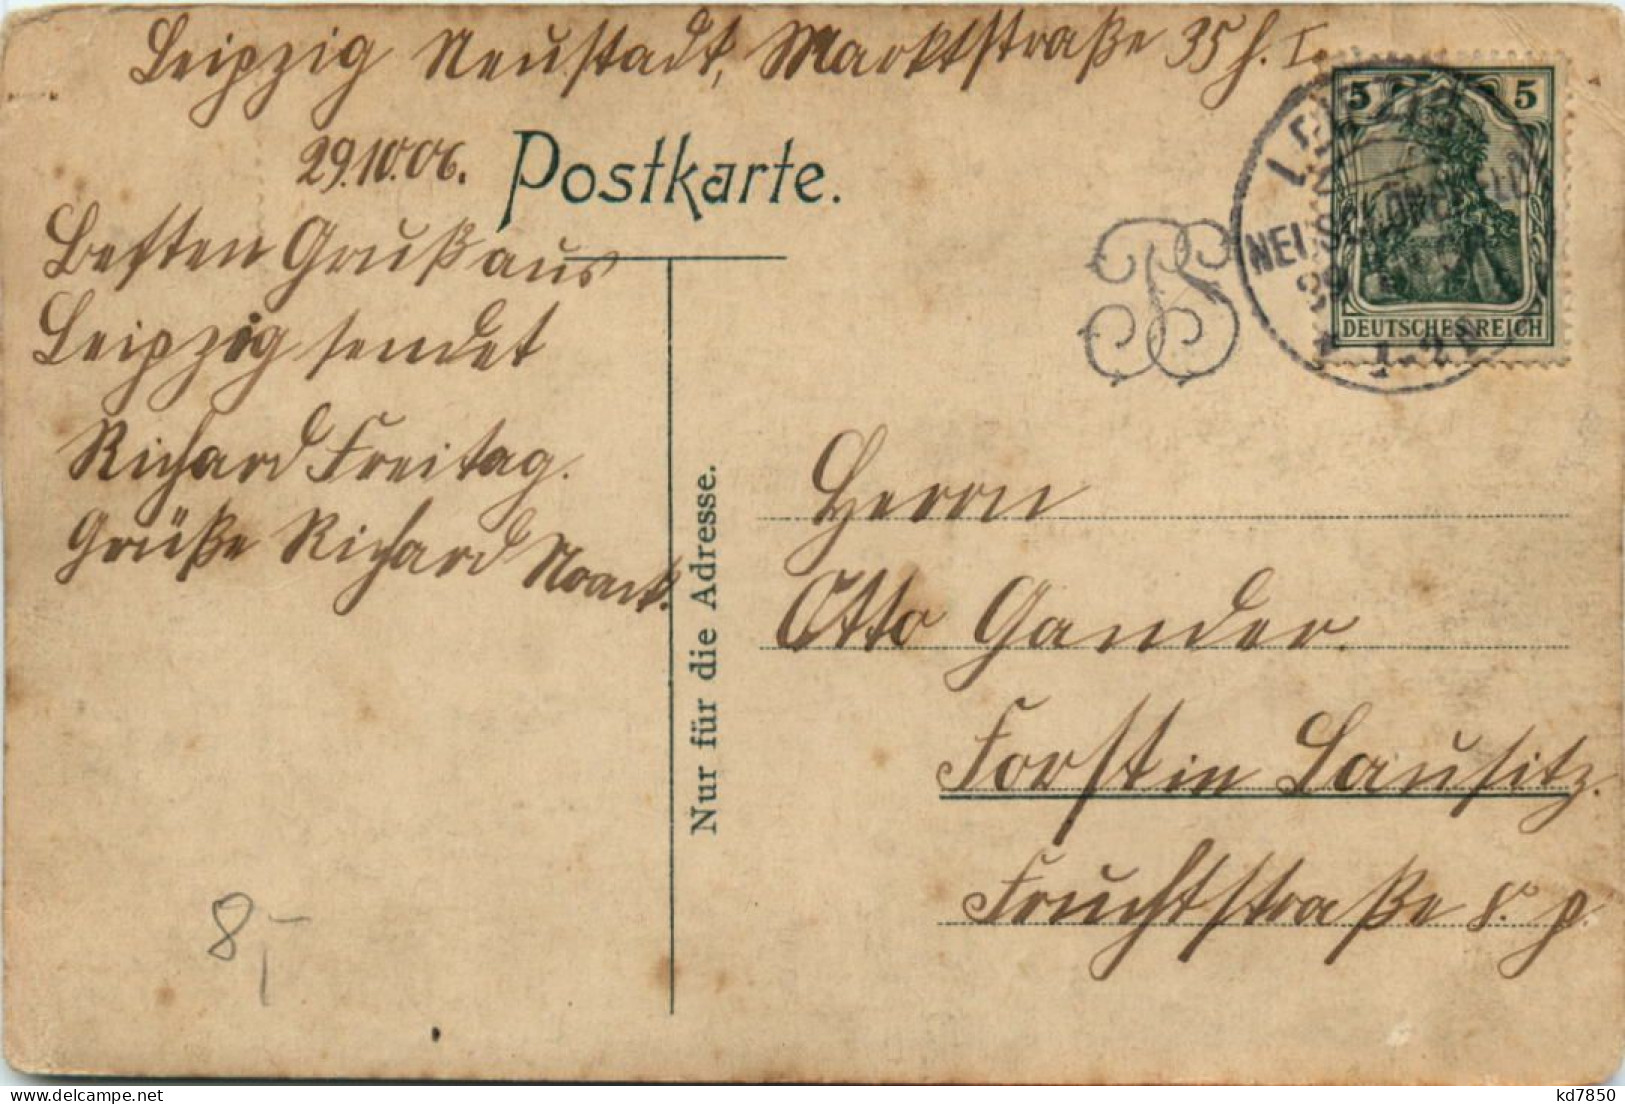 Leipzig Neustadt, Marktstraße 35 h. I.
29.10.06.
Postkarte.
Besten Gruß aus
Leipzig sendet
Richard Freitag.
Grüße Richard Noack.
Nur für die Adresse.
5 5
DEUTSCHES REICH
LEIPZIG
Herrn
Otto Gander.
Forst in Lausitz.
Fruchtstraße 8. p.
8,-
kd7850